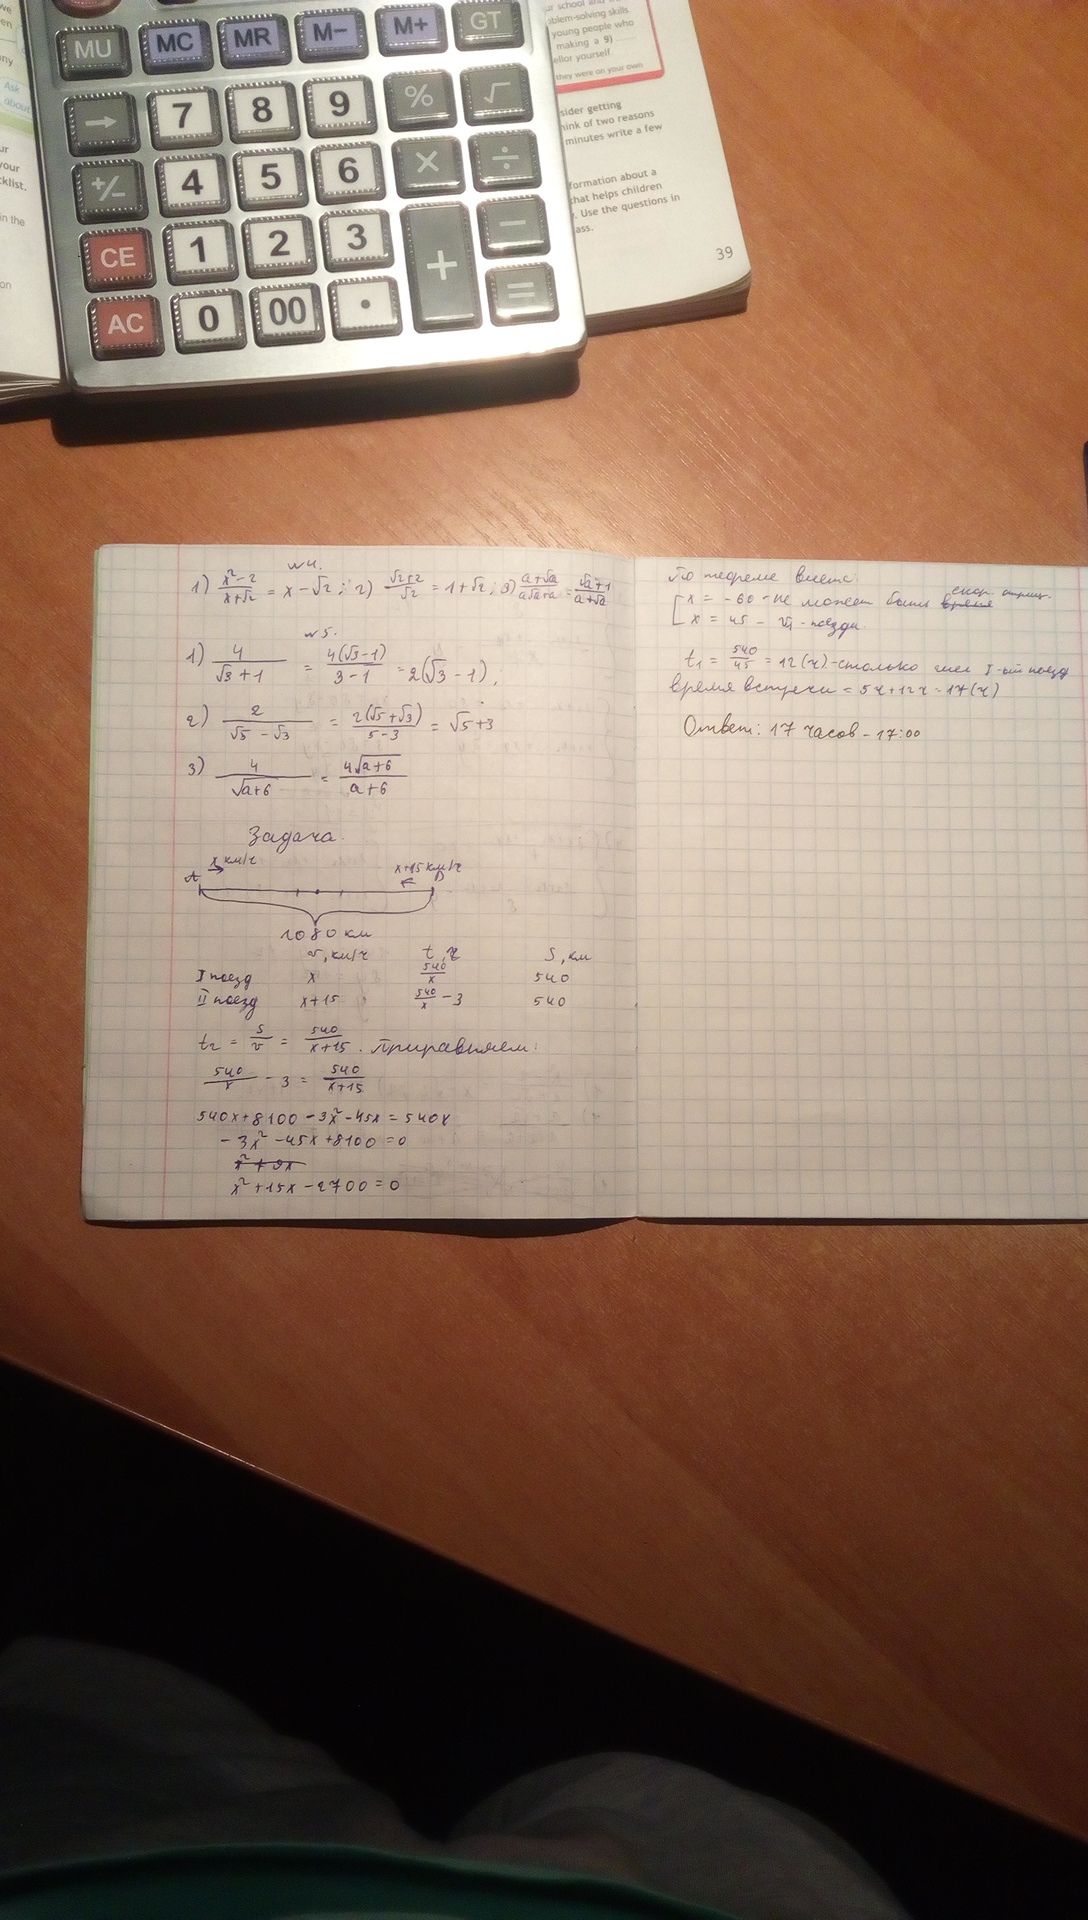 MU MC MR M− M+ GT
→ 7 8 9 % √
+/− 4 5 6 × ÷
CE 1 2 3 + −
AC 0 00 · =
Ask
about
your
klist.
in the
on
ur school and
oblem-solving skills.
young people who
making a 9)
ellor yourself.
they were on your own
sider getting
hink of two reasons
minutes write a few
formation about a
that helps children
. Use the questions in
ass.
39
№4.
1) (x²−2)/(x+√2) = x−√2; 2) (√2+2)/√2 = 1+√2; 3) (a+√a)/(a√a+a) = (√a+1)/(a+√a)
№5.
1) 4/(√3+1) = 4(√3−1)/(3−1) = 2(√3−1);
2) 2/(√5−√3) = 2(√5+√3)/(5−3) = √5+3
3) 4/√(a+6) = 4√(a+6)/(a+6)
Задача.
x км/ч x+15 км/ч
A
1080 км
v, км/ч t, ч S, км
I поезд x 540/x 540
II поезд x+15 540/x − 3 540
t₂ = S/v = 540/(x+15). Приравняем:
540/x − 3 = 540/(x+15)
540x+8100−3x²−45x=540x
−3x²−45x+8100=0
x²+15x−2700=0
По теореме Виета:
x = −60 – не может быть скор. отриц.
x = 45 – v₁ – поезда.
t₁ = 540/45 = 12(ч) – столько шел I-ый поезд
время встречи = 5ч+12ч=17(ч)
Ответ: 17 часов – 17:00